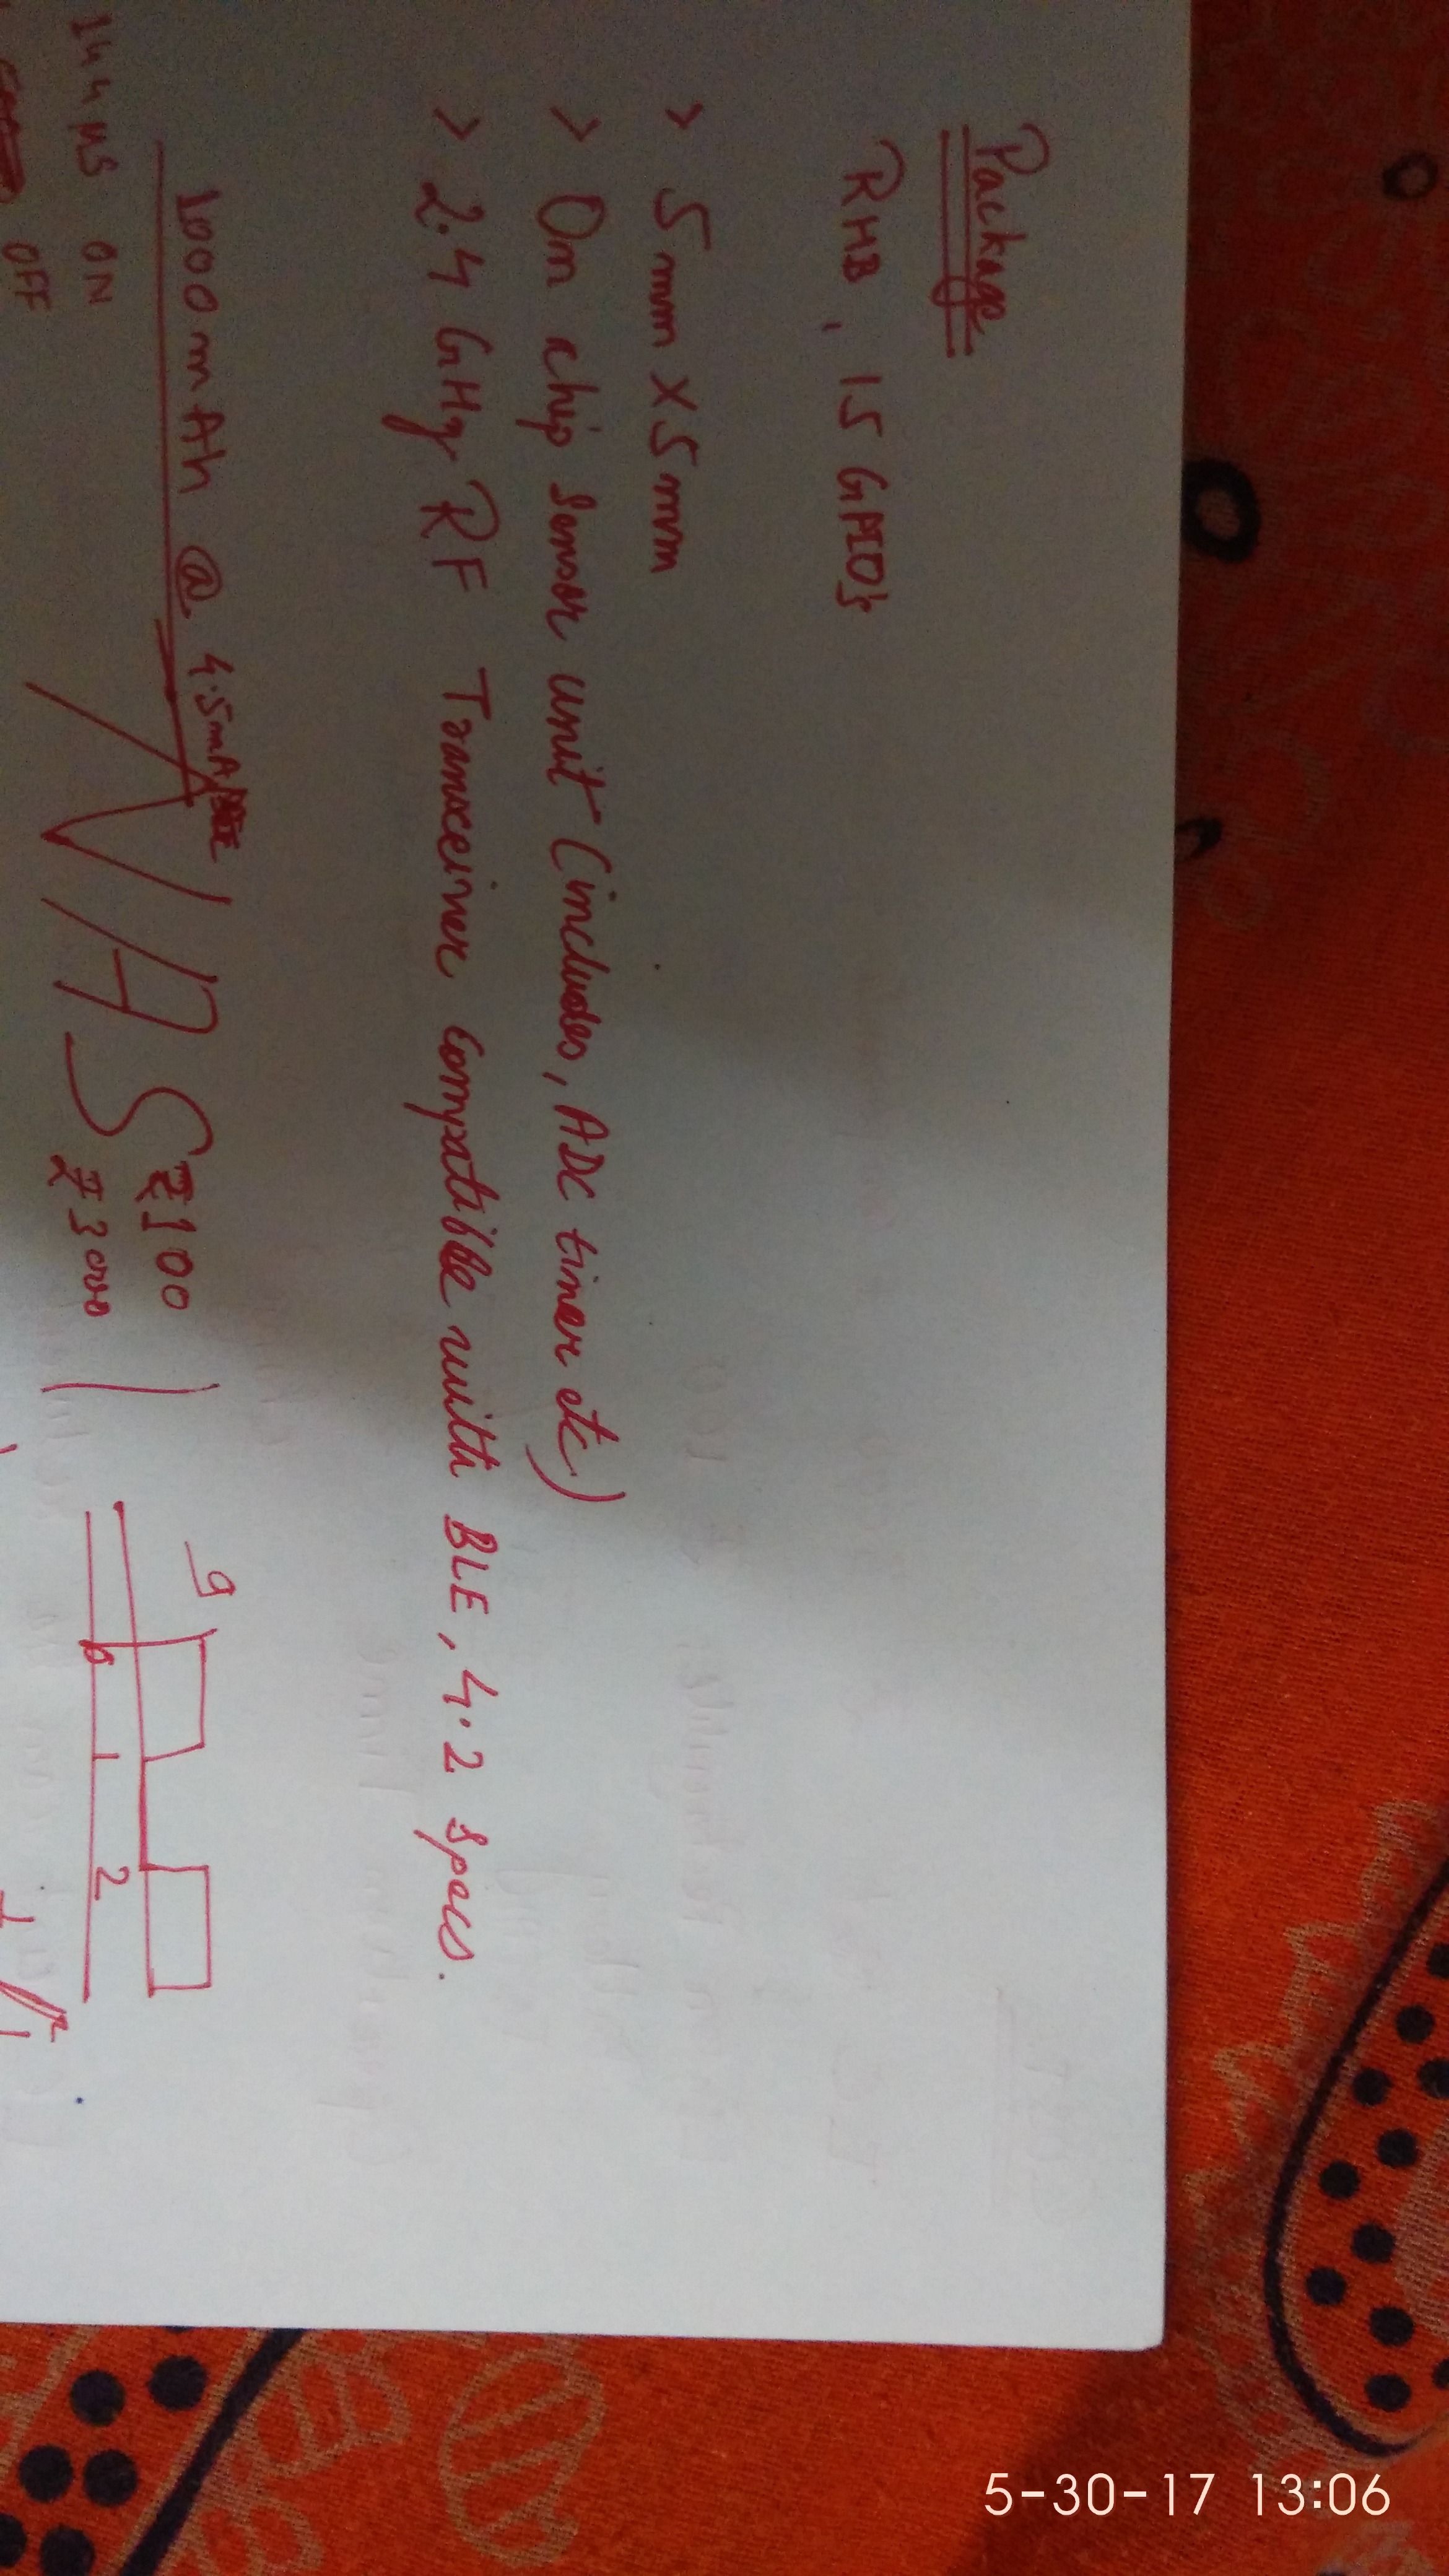 Package
RHB, 15 GPIOs
> 5mm X 5mm
> On chip Sensor unit (includes, ADC timer etc)
> 2.4 GHz RF Transceiver compatible with BLE, 4.2 specs.
1000 mAh @ 4.5mA
₹100
₹3000
9
0 1 2
144 µs ON
OFF
5-30-17 13:06